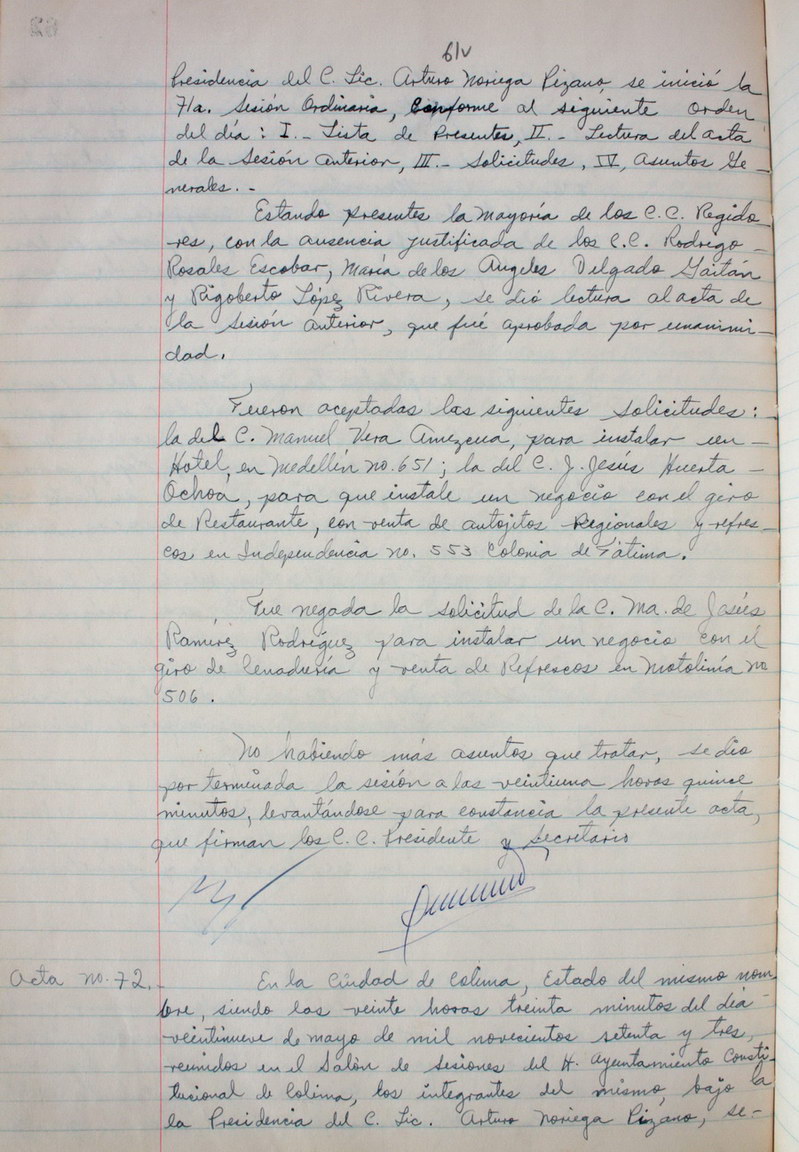 61v
Presidencia del C. Lic. Arturo Noriega Pizano, se inició la
71a. Sesión Ordinaria, Conforme al siguiente orden
del día: I.- Lista de Presentes, II.- Lectura del acta
de la Sesión anterior, III.- Solicitudes, IV, Asuntos Ge-
nerales.-
Estando presentes la Mayoría de los C.C. Regido-
res, con la ausencia justificada de los C.C. Rodrigo-
Rosales Escobar, María de los Angeles Delgado Gaitán
y Rigoberto López Rivera, se dió lectura al acta de
la Sesión anterior, que fué aprobada por unanimi-
dad.
Fueron aceptadas las siguientes solicitudes:
la del C. Manuel Vera Amezcua, para instalar un-
Hotel, en Medellín no. 651; la del C. J. Jesús Huerta-
Ochoa, para que instale un negocio con el giro
de Restaurante, con venta de antojitos Regionales y refres-
cos en Independencia no. 553 Colonia de Fátima.
Fue negada la solicitud de la C. Ma. de Jesús
Ramírez Rodríguez para instalar un negocio con el
giro de Cenaduría y venta de Refrescos en Motolinía no
506.
No habiendo más asuntos que tratar, se dio
por terminada la sesión a las veintiuna horas quince
minutos, levantándose para constancia la presente acta,
que firman los C.C. Presidente y Secretario
Acta no. 72.- En la Ciudad de Colima, Estado del mismo nom
bre, siendo las veinte horas treinta minutos del día-
veintinueve de mayo de mil novecientos setenta y tres,
reunidos en el Salón de sesiones del H. Ayuntamiento Consti-
tucional de Colima, los integrantes del mismo, bajo la
la Presidencia del C. Lic. Arturo Noriega Pizano, se-